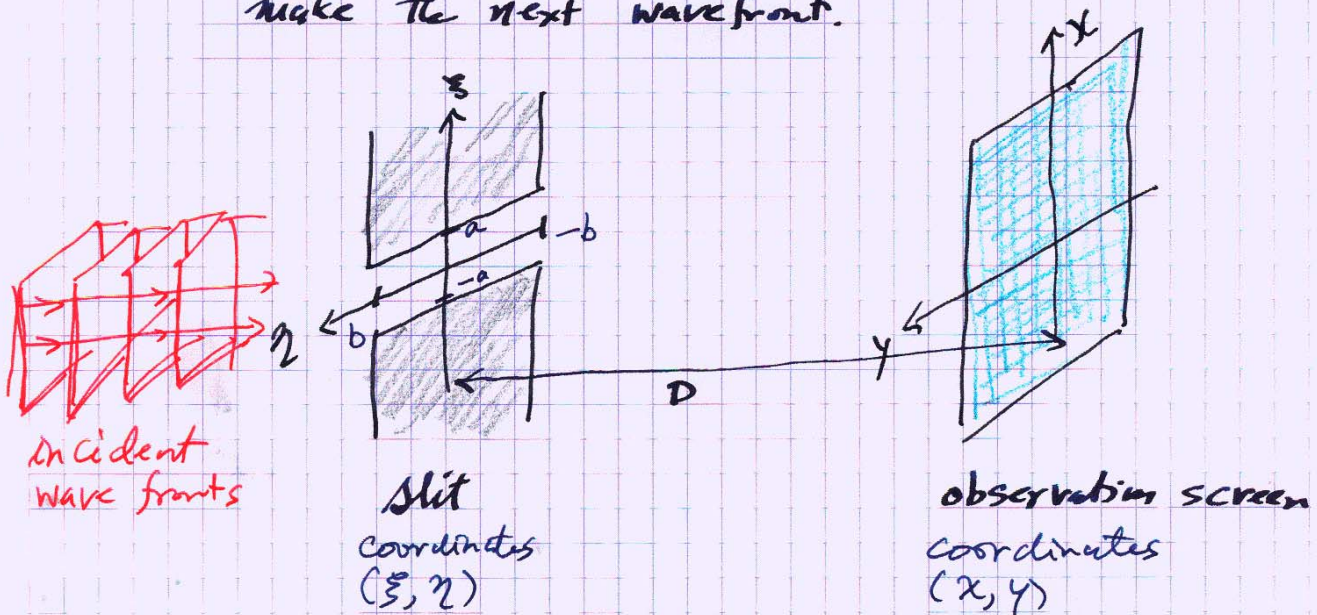 make the next wavefront.
x
ξ
a
-b
-a
b
η
y
D
incident
wave fronts
slit
coordinates
(ξ, η)
observation screen
coordinates
(x, y)